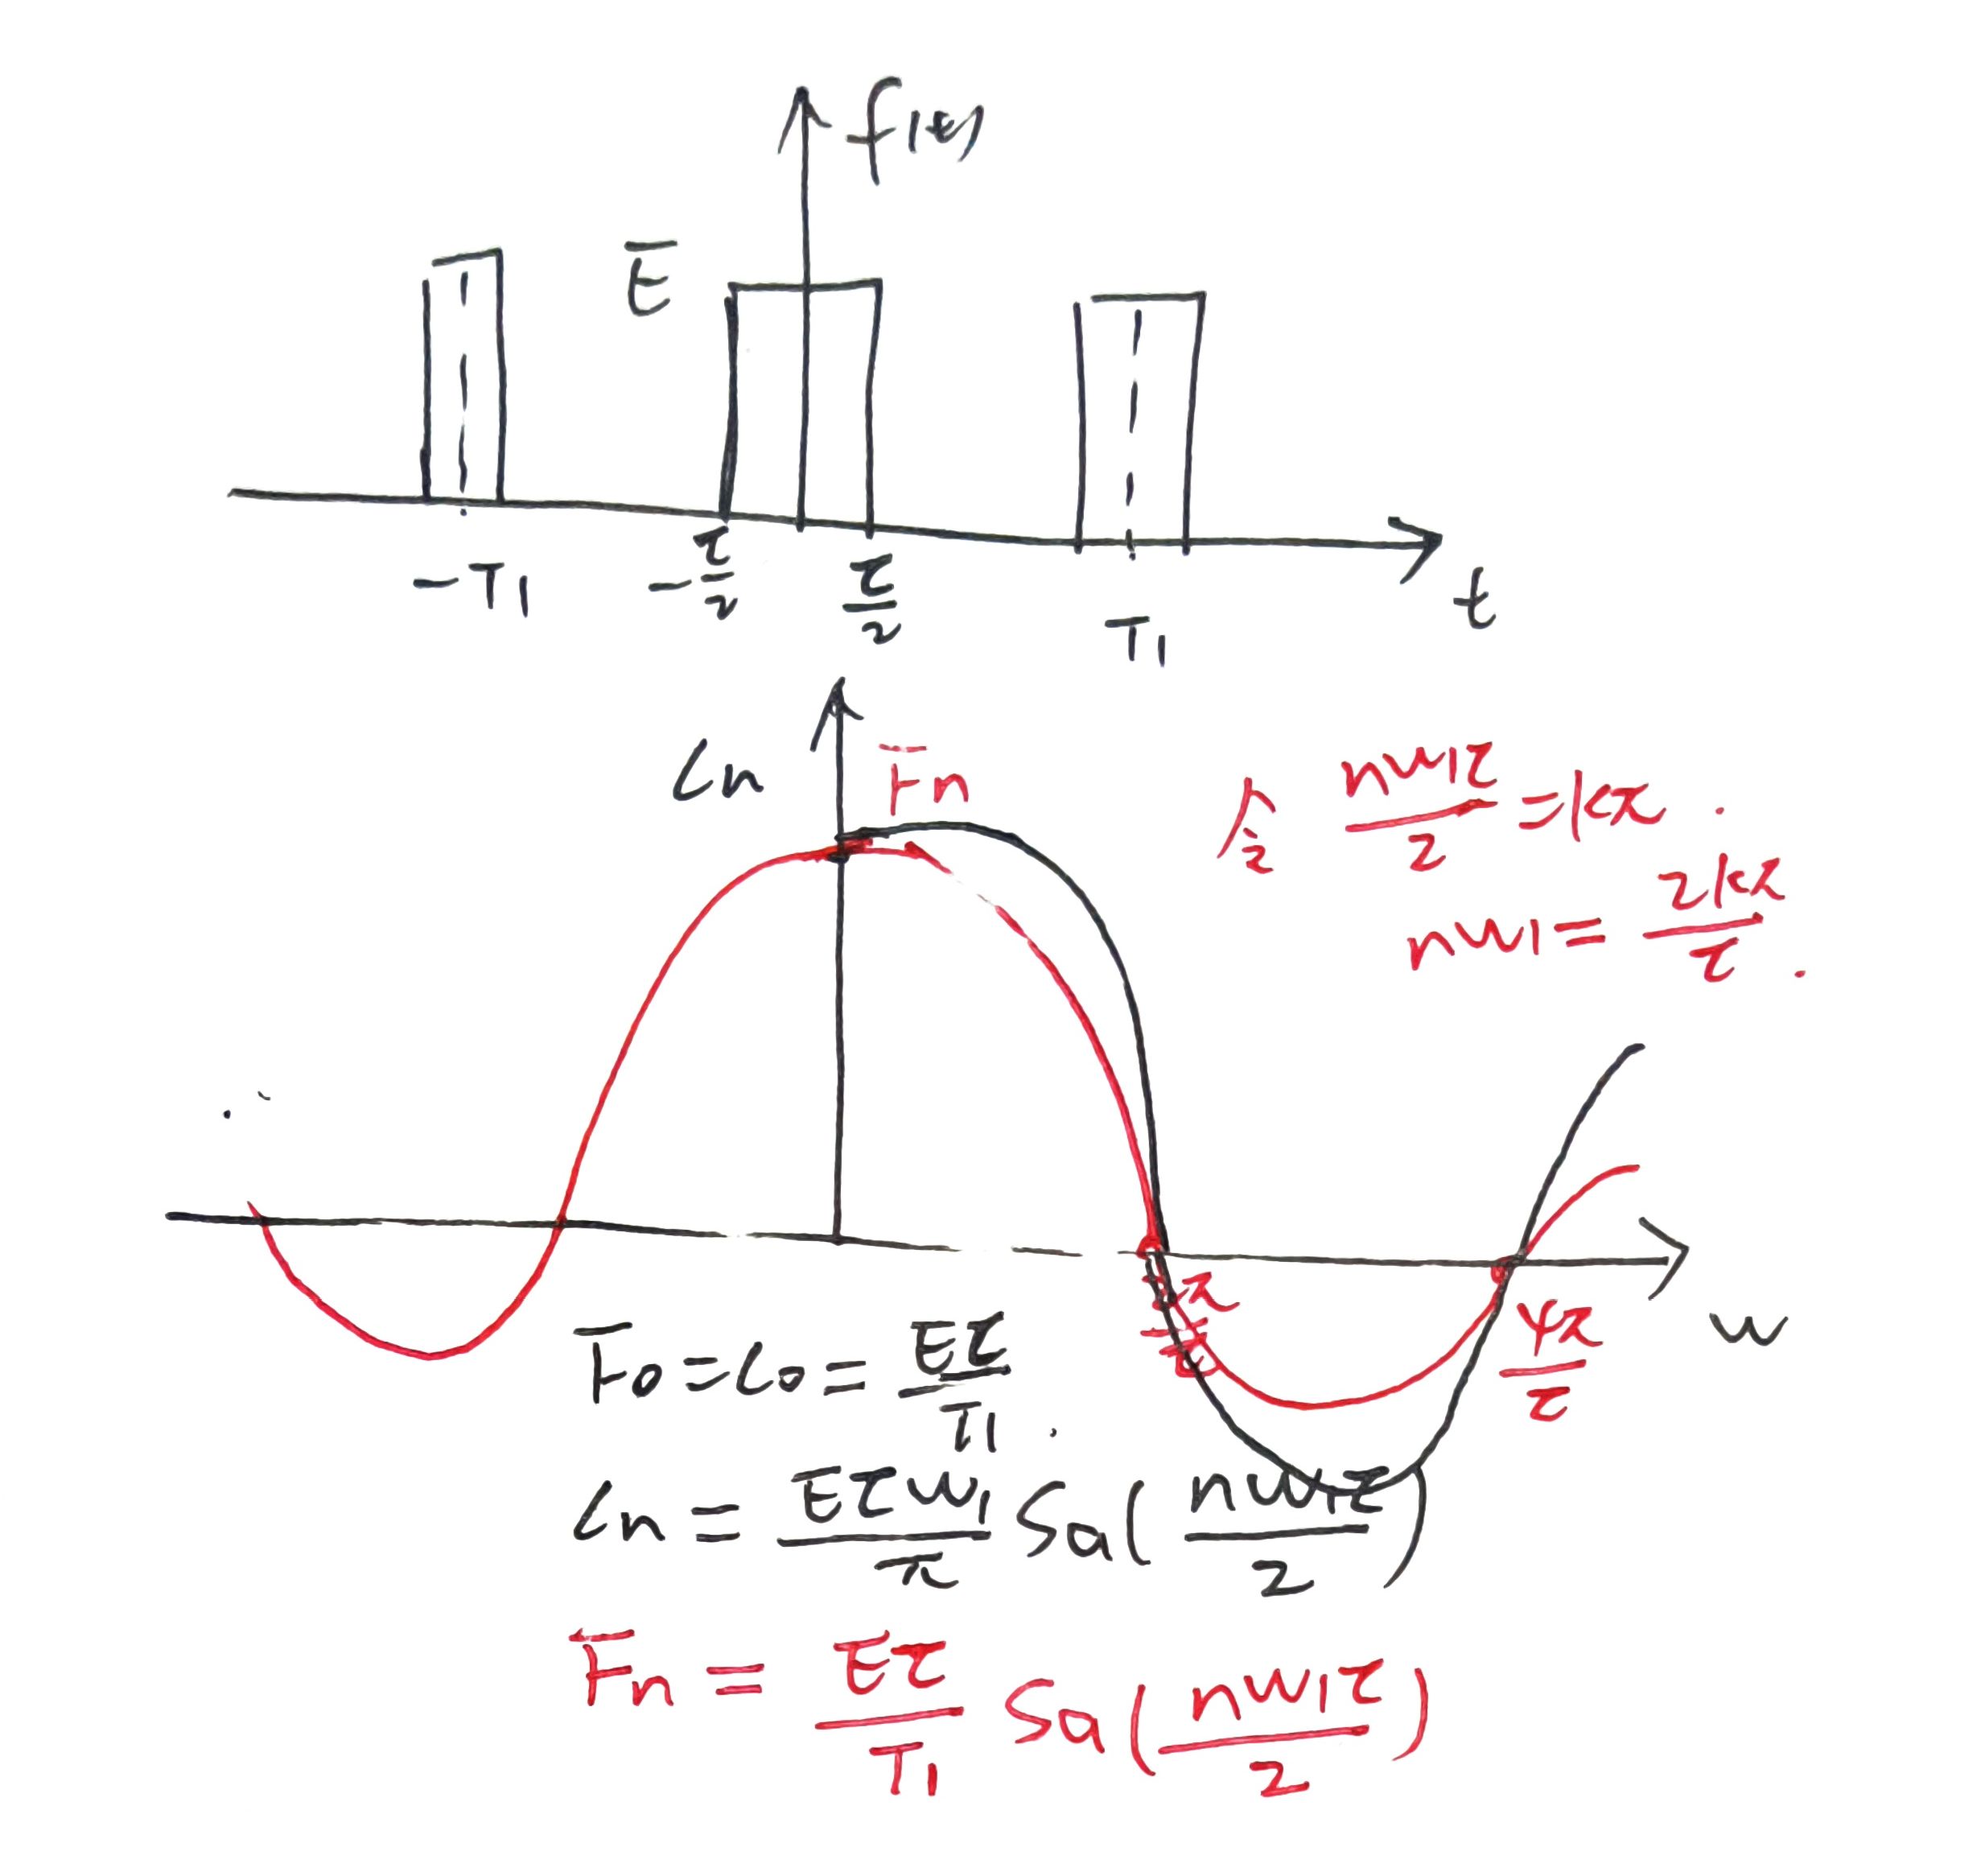 f(t)
E
-T1
-τ/2
τ/2
T1
t
Cn
Fn
令 nw1τ/2 = kπ .
nw1 = 2kπ/τ .
4π/τ
w
F0 = C0 = Eτ/T1 .
Cn = Eτw1/π Sa(nw1τ/2)
Fn = Eτ/T1 Sa(nw1τ/2)